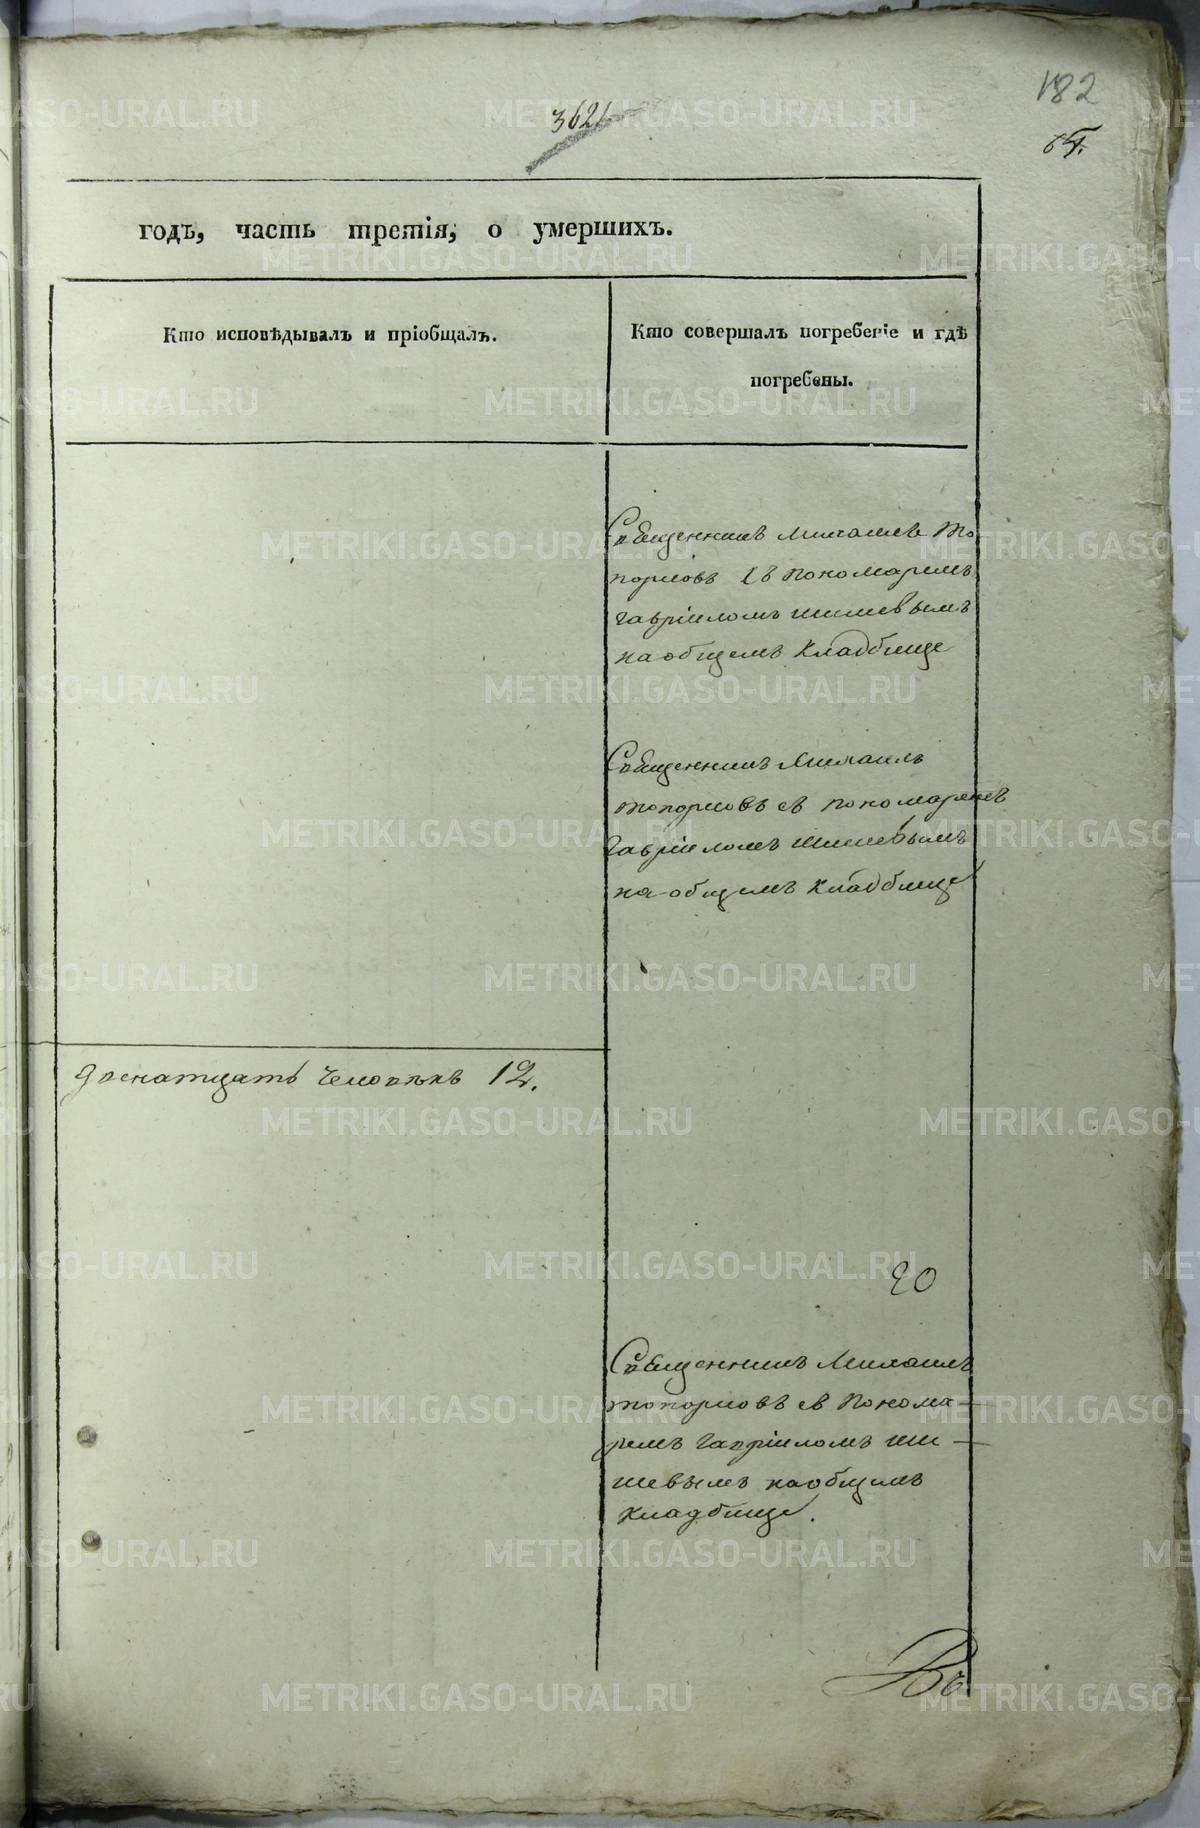 182
362
годъ, часть третія, о умершихъ.
Кто исповѣдывалъ и пріобщалъ.
Кто совершалъ погребеніе и гдѣ
погребены.
Священникъ Михаилъ То
порковъ съ пономаремъ
Гавріиломъ Шишевымъ
на общемъ кладбище
Священникъ Михаилъ
Топорковъ съ пономаремъ
Гавріиломъ Шишевымъ
на общемъ кладбище
двенатцать человѣкъ 12.
20
Священникъ Михаилъ
Топорковъ съ Понома-
ремъ Гавріиломъ Ши-
шевымъ на общемъ
кладбище.
METRIKI.GASO-URAL.RU